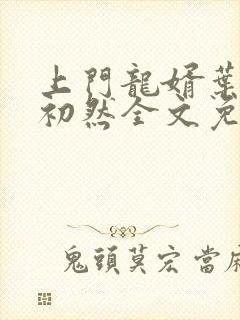 上門龍婿葉
初然全文免
鬼頭莫宏當麻